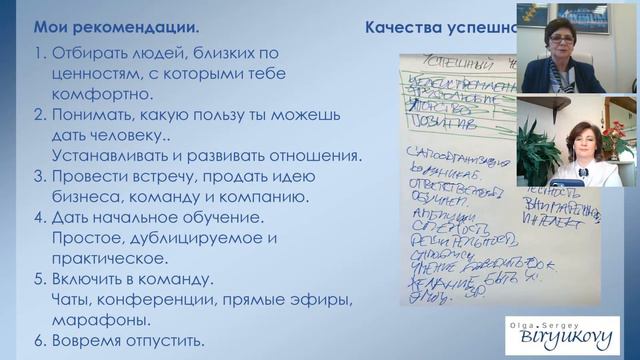 Мои рекомендации.
1. Отбирать людей, близких по
ценностям, с которыми тебе
комфортно.
2. Понимать, какую пользу ты можешь
дать человеку..
Устанавливать и развивать отношения.
3. Провести встречу, продать идею
бизнеса, команду и компанию.
4. Дать начальное обучение.
Простое, дублицируемое и
практическое.
5. Включить в команду.
Чаты, конференции, прямые эфиры,
марафоны.
6. Вовремя отпустить.
Качества успешно
УСПЕШНЫЙ
ТРУДОЛЮБИЕ
УПОРСТВО
ПОЗИТИВ
САМООРГАНИЗАЦИЯ
ОТВЕТСТВЕННОСТЬ
АМБИЦИИ
СМЕЛОСТЬ
РЕШИТЕЛЬНОСТЬ
УМЕНИЕ
ЖЕЛАНИЕ БЫТЬ
ЧЕСТНОСТЬ
ИНТЕЛЕКТ
Olga Sergey
BIryukovy